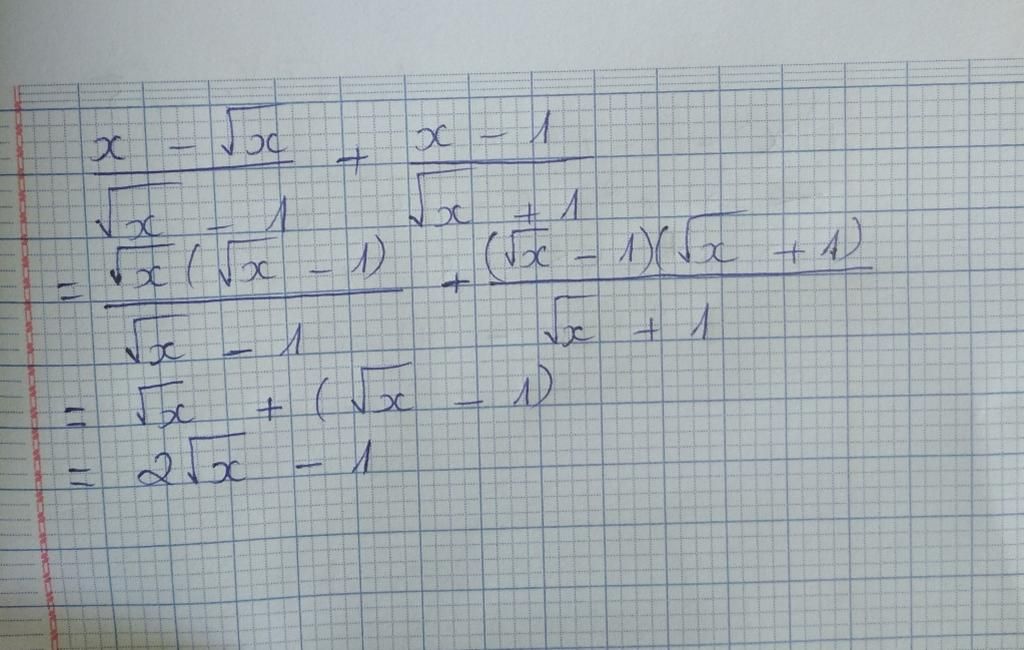 x - √x / √x - 1 + x - 1 / √x + 1
= √x (√x - 1) / √x - 1 + (√x - 1)(√x + 1) / √x + 1
= √x + (√x - 1)
= 2√x - 1